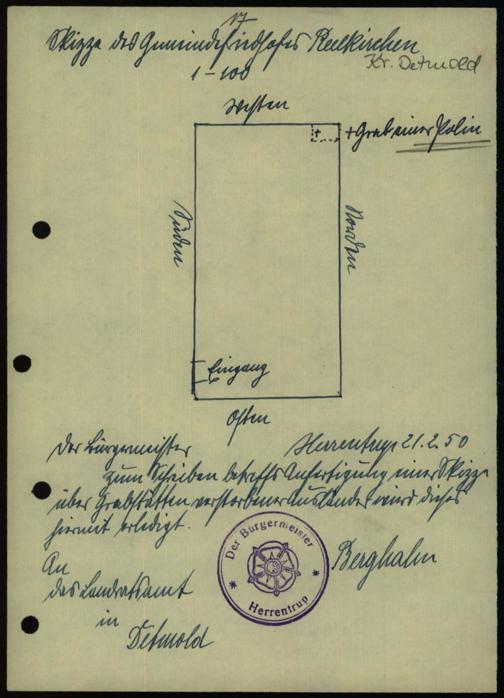 17
Skizze des Gemeindefriedhofes Reelkirchen
Kr. Detmold
1-100
Westen
+ Grab einer Polin
Süden
Norden
Eingang
Osten
Der Bürgermeister
Herrentrup 21.2.50
zum Schreiben betreffs Anfertigung einer Skizze
über Grabstätten verstorbener Ausländer wird dieses
hiermit erledigt.
An
das Landratsamt
in
Detmold
Der Bürgermeister
Herrentrup